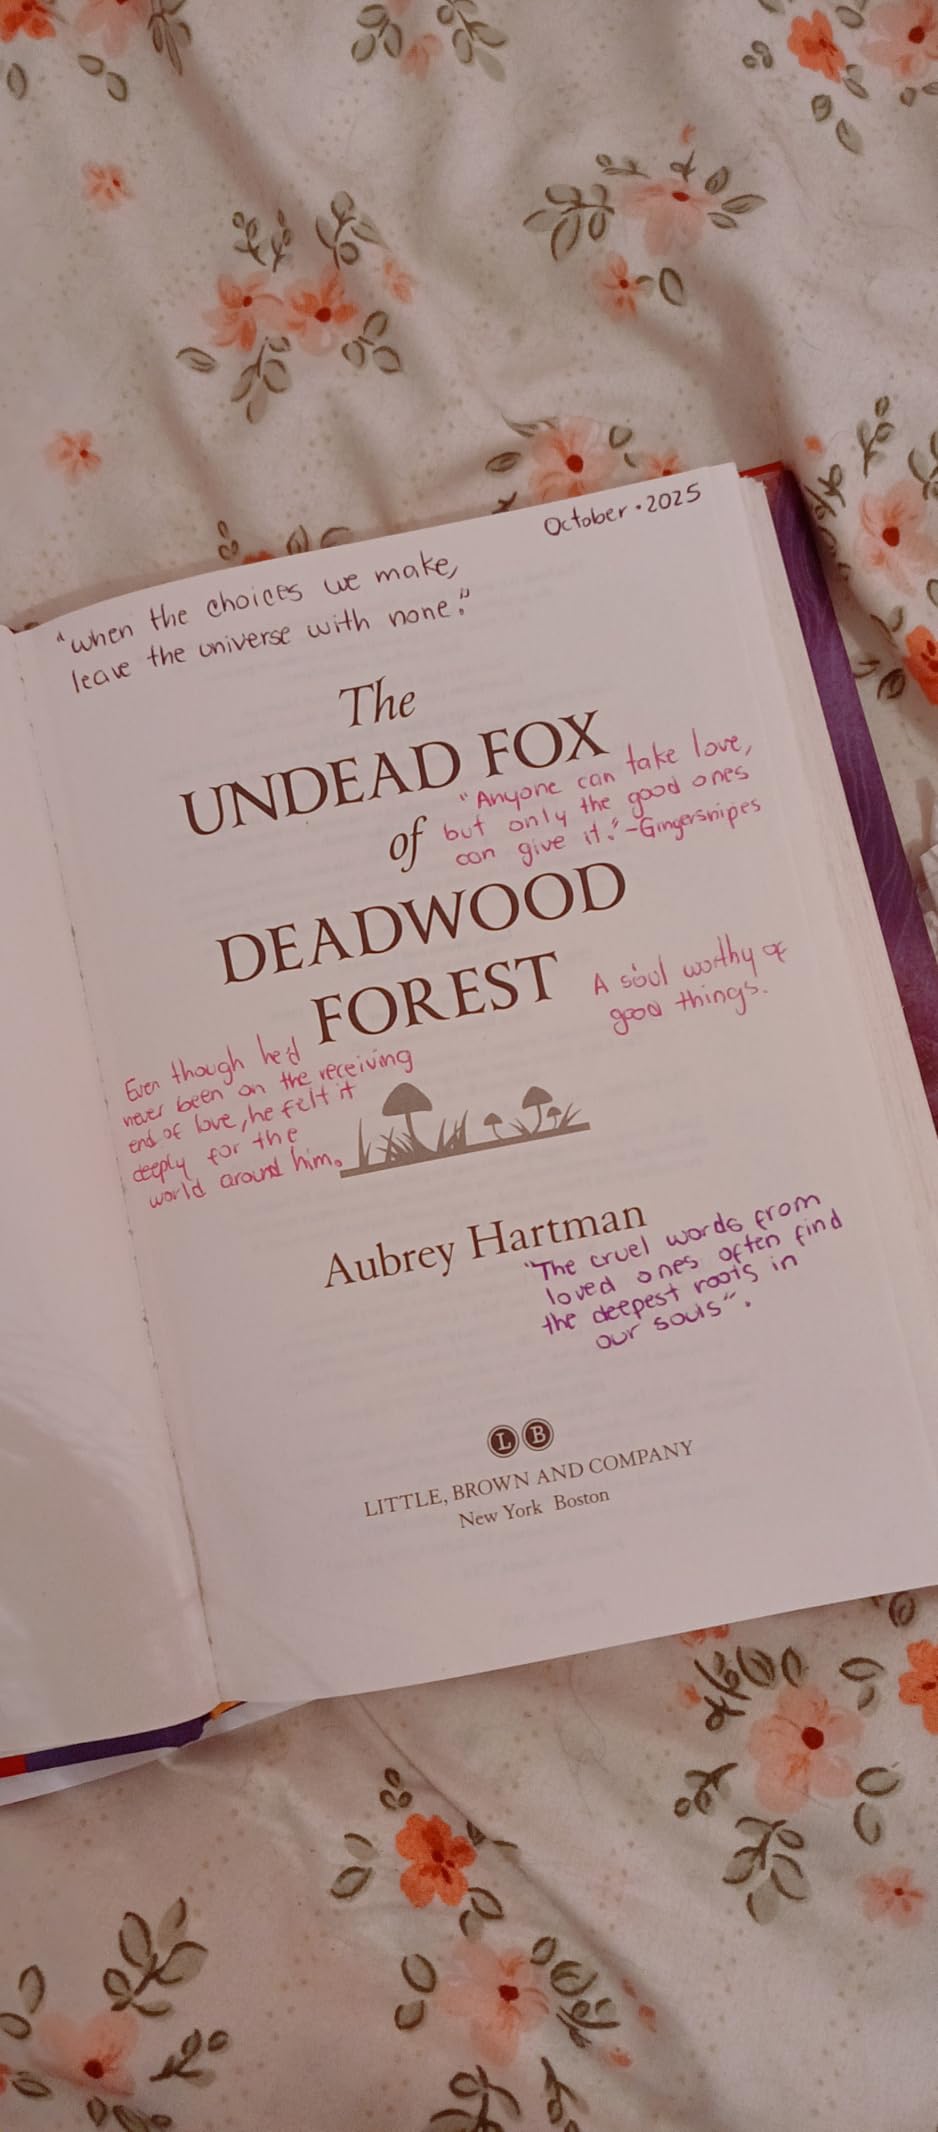 October • 2025
"when the choices we make,
leave the universe with none."
The
UNDEAD FOX
of
"Anyone can take love,
but only the good ones
can give it." -Gingersnipes
DEADWOOD
FOREST
A soul worthy of
good things.
Even though he'd
never been on the receiving
end of love, he felt it
deeply for the
world around him.
Aubrey Hartman
"The cruel words from
loved ones often find
the deepest roots in
our souls".
L B
LITTLE, BROWN AND COMPANY
New York Boston